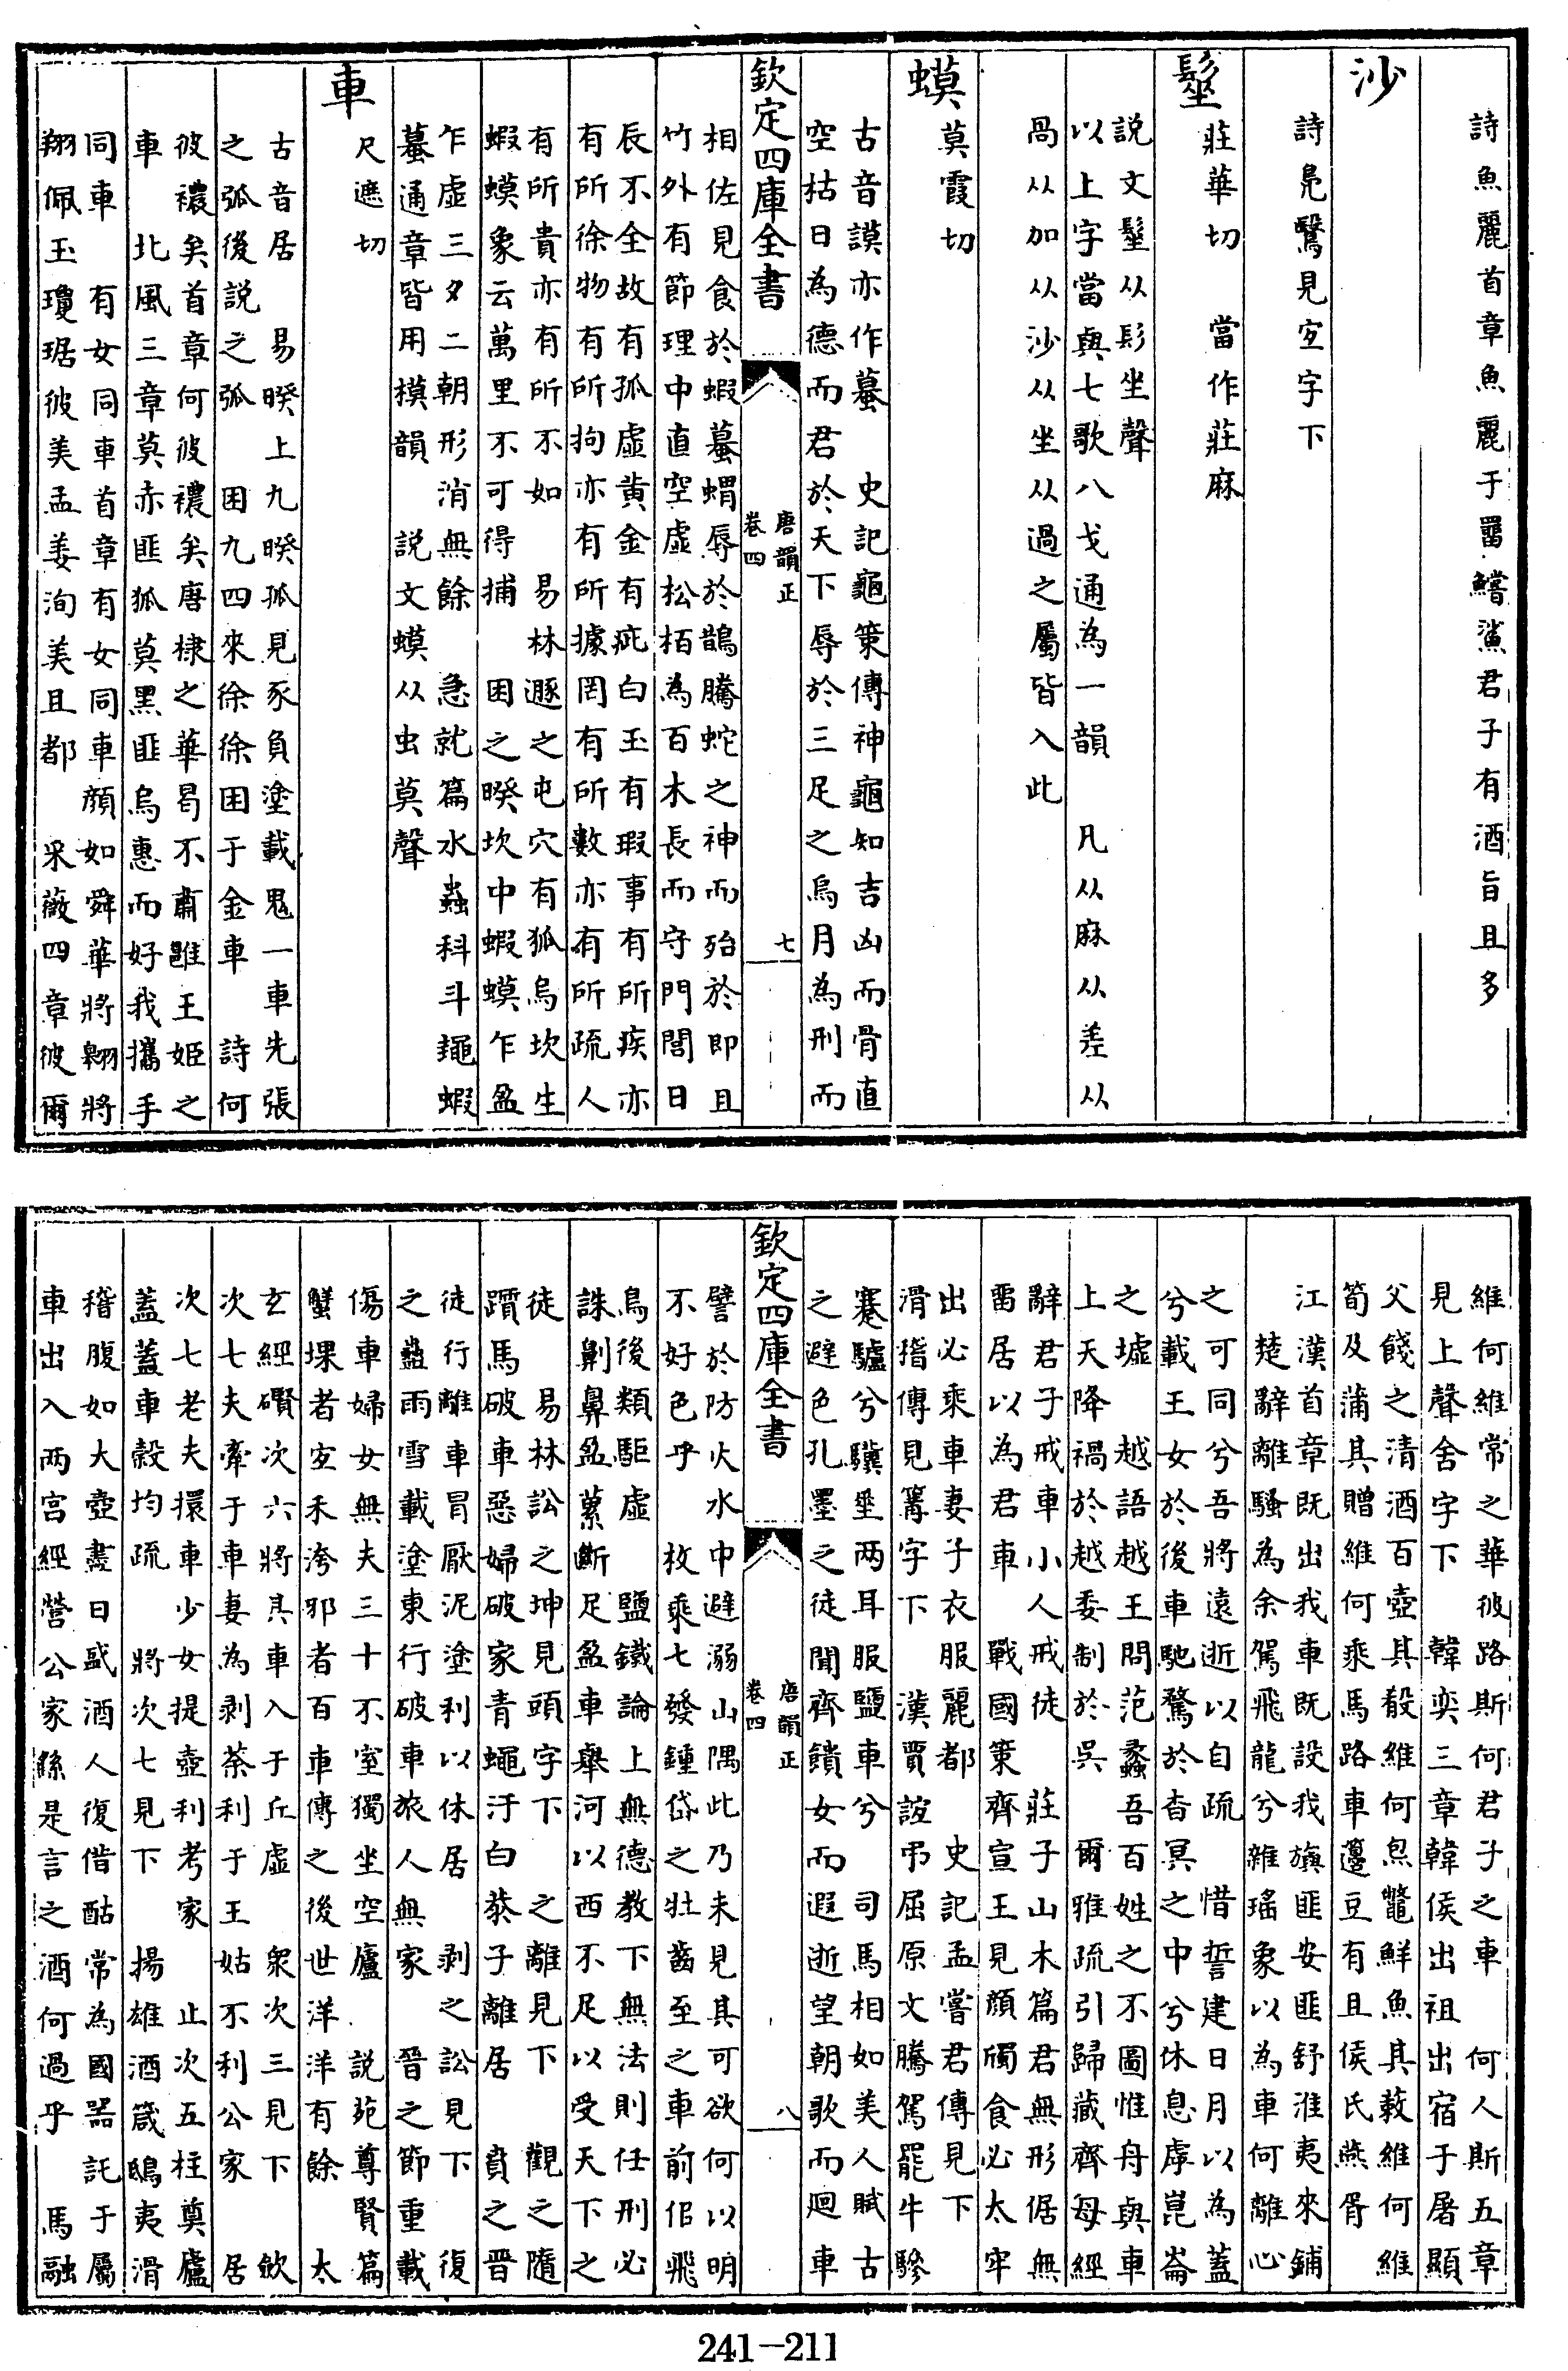 詩魚麗首章魚麗于罶鱨鯊君子有酒旨且多
沙
詩鳧鷖見宐字下
髽
莊華切　當作莊麻
說文髽从髟坐聲
以上字當與七歌八戈通為一韻　凡从麻从差从
咼从加从沙从坐从過之屬皆入此
蟆
莫霞切
古音謨亦作蟇　史記龜策傳神龜知吉凶而骨直
空枯日為德而君於天下辱於三足之烏月為刑而
欽定四庫全書
唐韻正
卷四
七
相佐見食於蝦蟇蝟辱於鵲騰蛇之神而殆於即且
竹外有節理中直空虛松栢為百木長而守門閭日
辰不全故有孤虛黄金有疵白玉有瑕事有所疾亦
有所徐物有所拘亦有所據罔有所數亦有所疏人
有所貴亦有所不如　易林遯之屯穴有狐烏坎生
蝦蟆象云萬里不可得捕　困之暌坎中蝦蟆乍盈
乍虛三夕二朝形消無餘　急就篇水蟲科斗䵷蝦
蟇通章皆用模韻　說文蟆从虫莫聲
車
尺遮切
古音居　易暌上九暌孤見豕負塗載鬼一車先張
之弧後說之弧　困九四來徐徐困于金車　詩何
彼襛矣首章何彼襛矣唐棣之華曷不肅雝王姬之
車　北風三章莫赤匪狐莫黑匪烏惠而好我攜手
同車　有女同車首章有女同車顔如舜華將翺將
翔佩玉瓊琚彼美孟姜洵美且都　采薇四章彼爾
維何維常之華彼路斯何君子之車　何人斯五章
見上聲舍字下　韓奕三章韓侯出祖出宿于屠顯
父餞之清酒百壺其殽維何炰鼈鮮魚其蔌維何維
筍及蒲其贈維何乘馬路車籩豆有且侯氏燕胥
江漢首章既出我車既設我旟匪安匪舒淮夷來鋪
楚辭離騷為余駕飛龍兮雜瑤象以為車何離心
之可同兮吾將遠逝以自疏　惜誓建日月以為蓋
兮載王女於後車馳騖於杳冥之中兮休息虖崑崙
之墟　越語越王問范蠡吾百姓之不圖惟舟與車
上天降禍於越委制於吳　爾雅疏引歸藏齊母經
辭君子戒車小人戒徒　莊子山木篇君無形倨無
畱居以為君車　戰國策齊宣王見顏斶食必太牢
出必乘車妻子衣服麗都　史記孟嘗君傳見下
滑稽傳見篝字下　漢賈誼弔屈原文騰駕罷牛驂
蹇驢兮驥坐两耳服鹽車兮　司馬相如美人賦古
之避色孔墨之徒聞齊饋女而遐逝望朝歌而迴車
欽定四庫全書
唐韻正
卷四
八
譬於防火水中避溺山隅此乃未見其可欲何以明
不好色乎　枚乘七發鍾岱之牡齒至之車前佀飛
鳥後類駏虛　鹽鐵論上無德教下無法則任刑必
誅劓鼻盈蔂斷足盈車舉河以西不足以受天下之
徒　易林訟之坤見頭字下　之離見下　觀之隨
躓馬破車惡婦破家青蠅汙白恭子離居　賁之晉
徒行離車冒厭泥塗利以休居　剥之訟見下　復
之蠱雨雪載塗東行破車旅人無家　晉之節重載
傷車婦女無夫三十不室獨坐空廬　說苑尊賢篇
蟹堁者宐禾洿邪者百車傳之後世洋洋有餘　太
玄經礥次六將其車入于丘虛　衆次三見下　斂
次七夫牽于車妻為剥荼利于王姑不利公家　居
次七老夫擐車少女提壺利考家　止次五柱奠廬
蓋蓋車轂均疏　將次七見下　揚雄酒箴鴟夷滑
稽腹如大壺盡日盛酒人復借酤常為國器託于屬
車出入两宫經營公家繇是言之酒何過乎　馬融
241-211